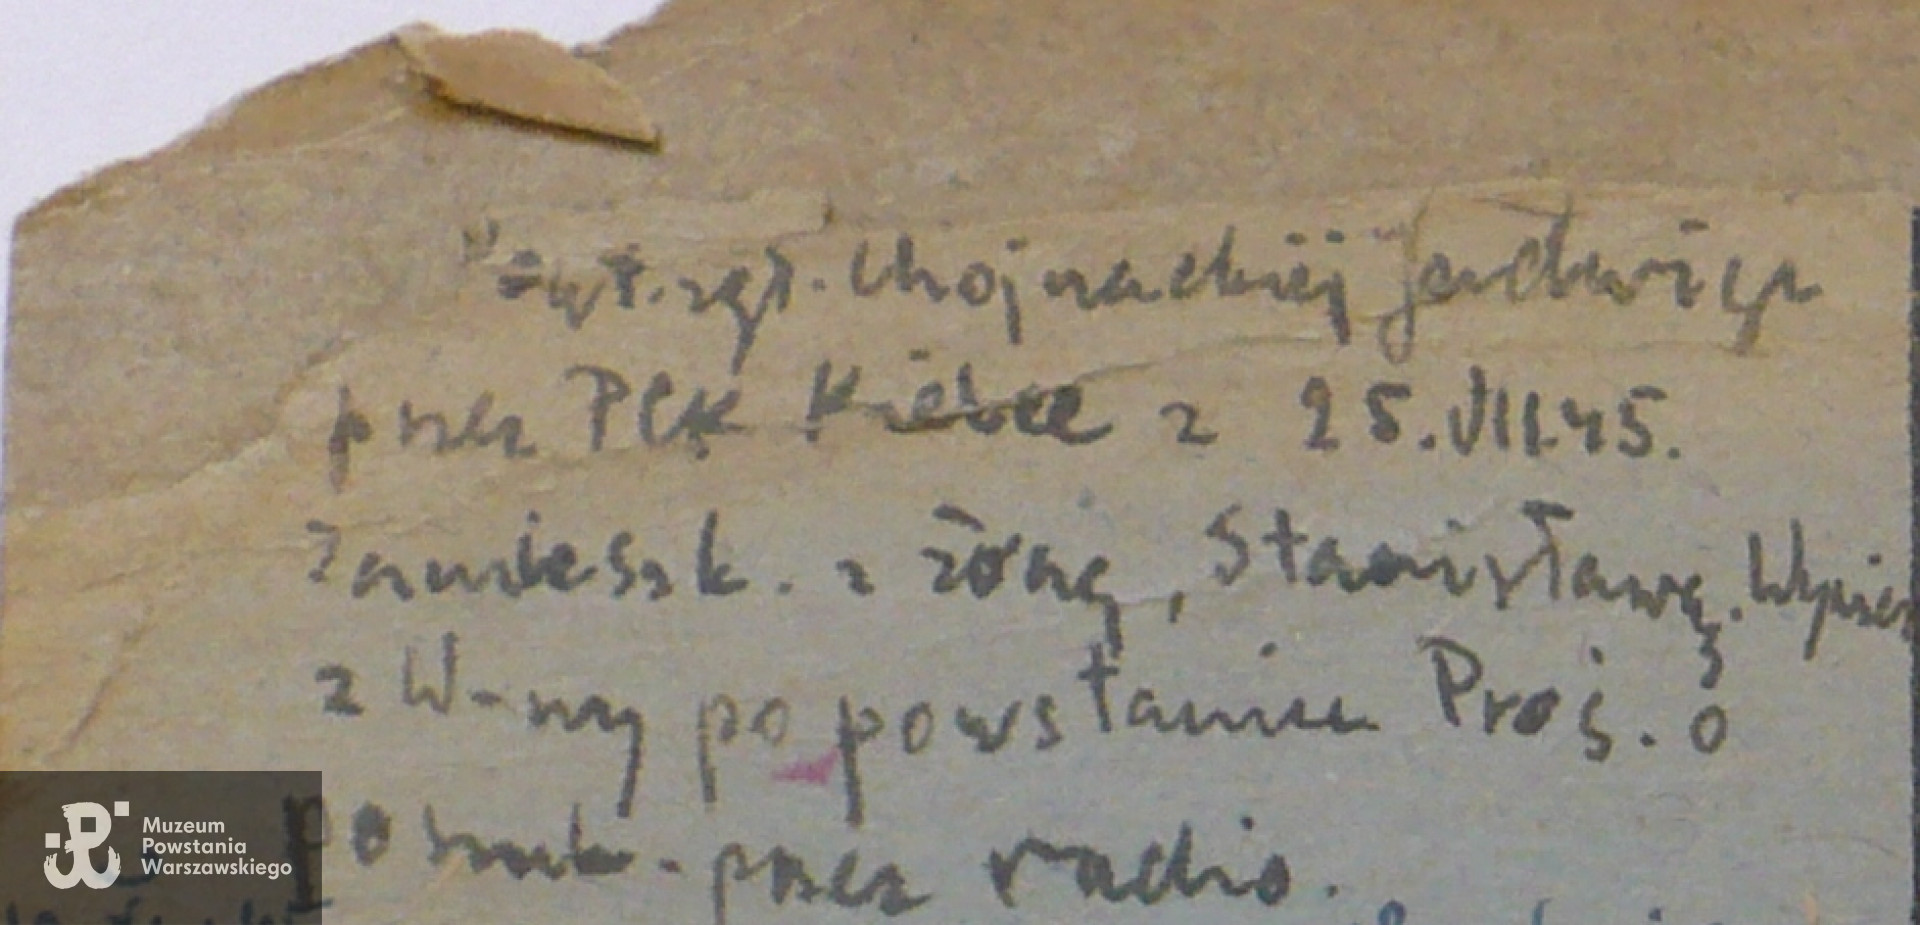 zgł. Chojnackiej Jadwigi
przez PCK Kielce z 25.VII.45.
Zamieszk. z żoną, Stanisławą. Wypier
z W-wy po powstaniu Proś. o
poszuk. przez radio.
Muzeum
Powstania
Warszawskiego